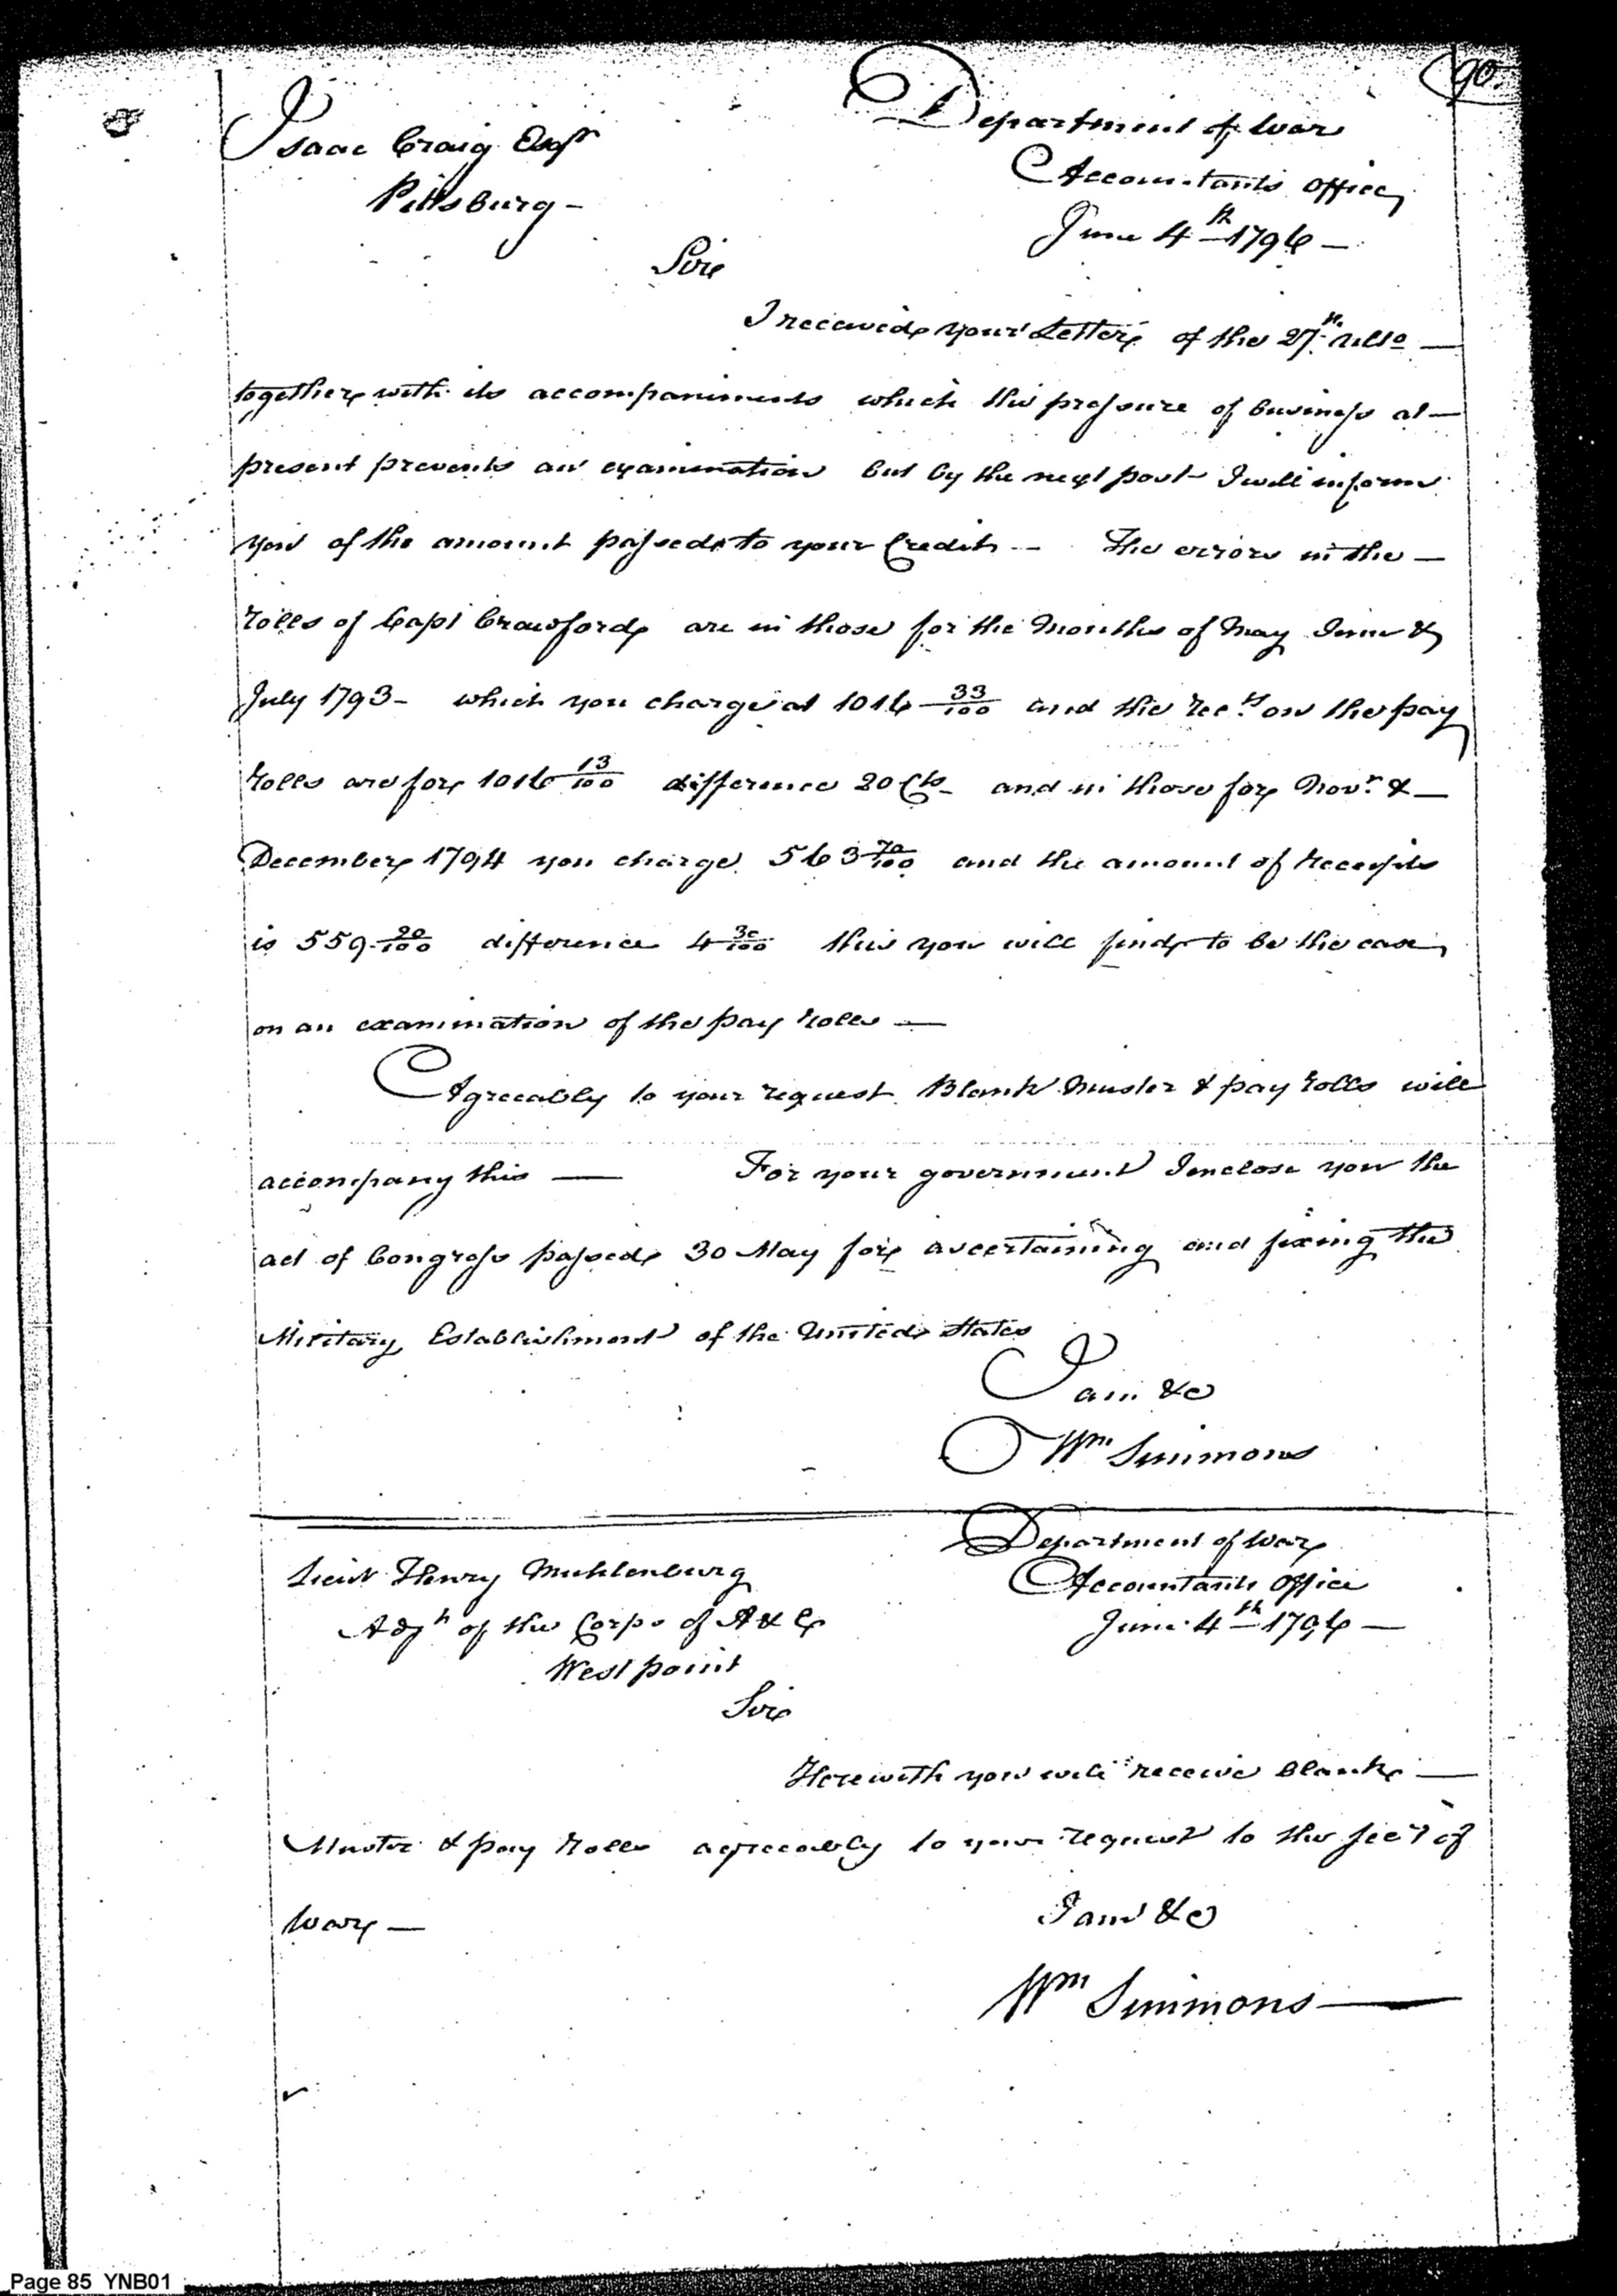 90.
Isaac Craig Esqr
Pittsburg -
Department of War
Accountants office
June 4th 1796 -
Sir
I received your Letter of the 27th ulto -
together with its accompaniments which the pressure of business at -
present prevents an examination but by the next post I will inform
you of the amount passed to your Credit - The errors in the -
rolls of Capt Crawford are in those for the Months of May June &
July 1793 - which you charge at 1016 33/100 and the recets on the pay
rolls are for 1016 13/100 difference 20 Cts - and in those for Novr &
December 1794 you charge 563 70/100 and the amount of Receipts
is 559 20/100 difference 4 30/100 this you will find to be the case
on an examination of the pay rolls -
Agreeably to your request Blank Muster & pay rolls will
accompany this - For your government I enclose you the
act of Congress passed 30 May for ascertaining and fixing the
Military Establishment of the United States
I am &c
Wm Simmons
Department of War
Accountants office
June 4th 1796 -
Lieut Henry Muhlenburg
Adjt of the Corps of A & E
West point
Sir
Herewith you will receive blank -
Muster & pay Rolls agreeably to your request to the Secy of
War -
I am &c
Wm Simmons
Page 85 YNB01